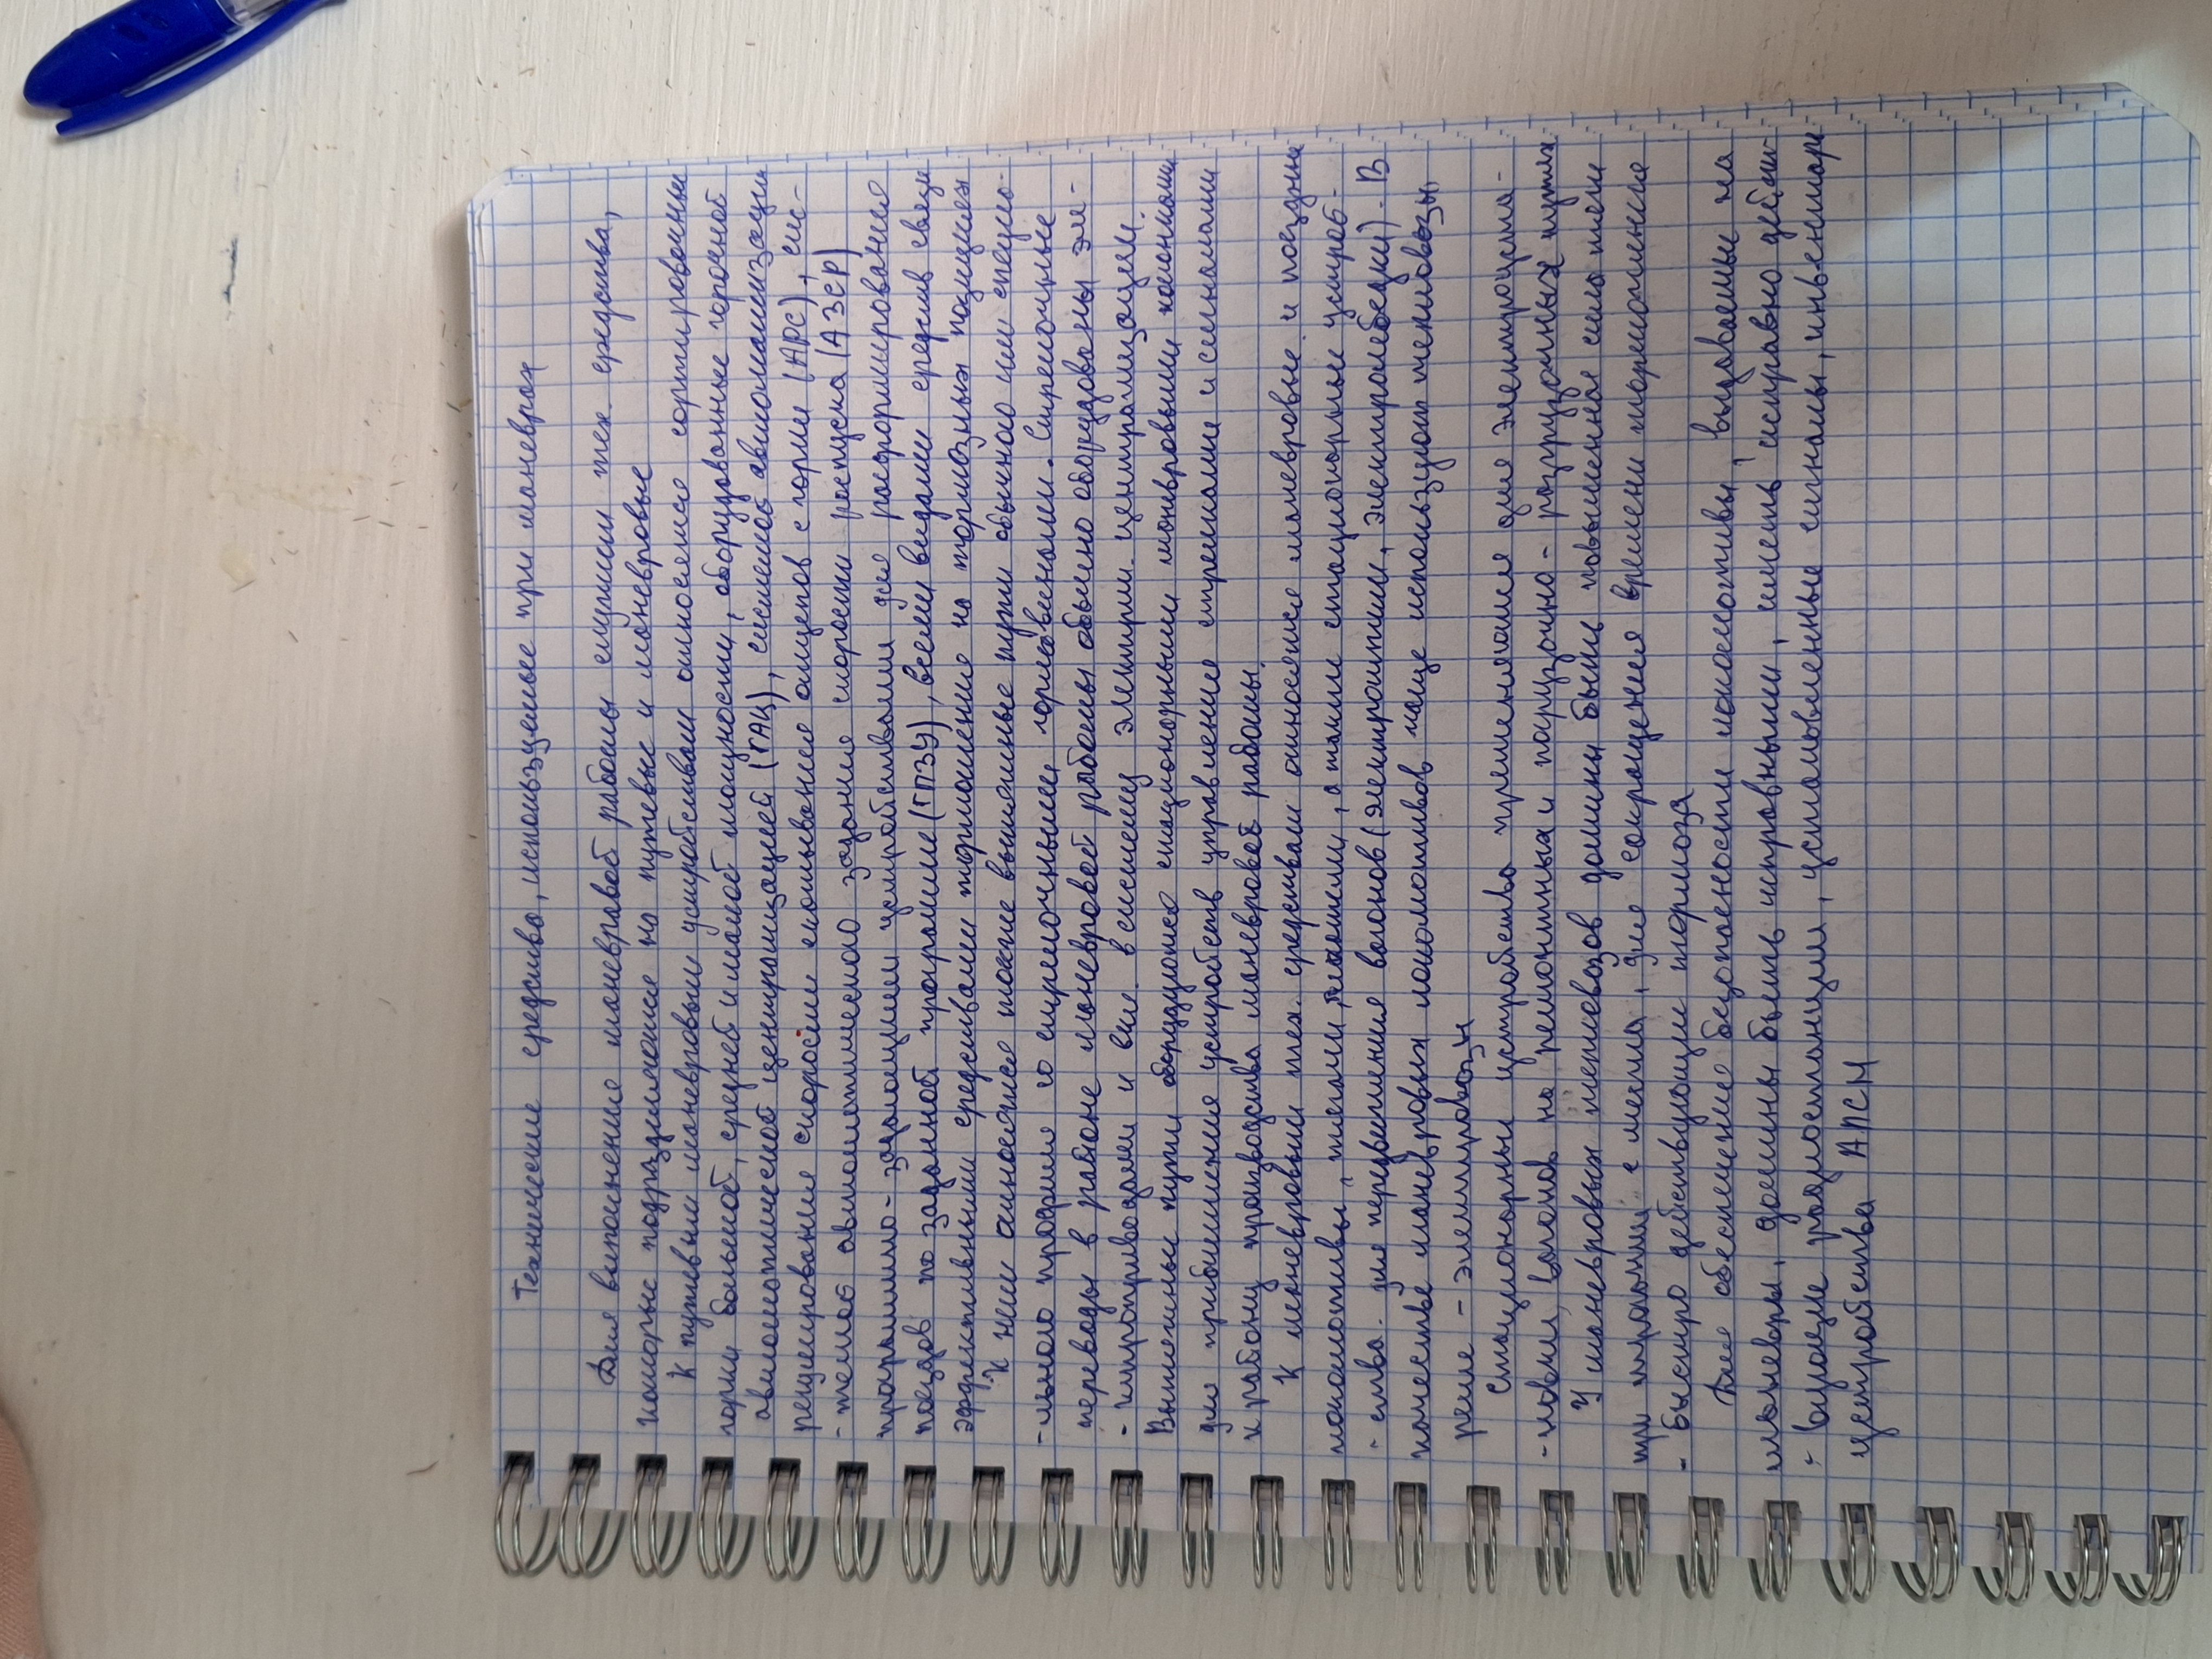 Технические средства, использемые при маневрах
Для выполнения маневравой работы служат тех средства,
которые подразделяются на путевые и маневровые
К путевым маневровым устройствам относятся сортировочные
горки большой, средней и малой мощности, оборудованные горочной
автоматической централизацией (ГАЦ), системой автоматизации
регулирования скорости скатывания отцепов с горки (АРС), сис-
-темой автоматического задания скорости роспуска (АЗСР)
программно-задающим устройствами для расформирования
поездов по заданной программе (ГПЗУ), всеми видами средств связи
эффективными средствами торможения на тормозных позициях
К ним относятся также вытяжные пути обычного или специа-
-льного профиля со стрелочными горловинами. Стрелочные
переводы в районе маневровой работы обычно оборудованы эл-
-ктроприводами и вкл. в систему электрич. централизации.
Вытяжные пути оборудуются стационарными маневровыми колонками
для приближения устройств управление стрелками и сигналами
к району производства маневровой работы.
К маневровым тех. средствам относятся маневровые и поездные
локомотивы, тягачи, а также стационарные устройс-
-ства для передвижения вагонов (электрошпили, электролебедки). В
качестве маневровых локомотивов чаще используют тепловозы,
реже - электровозы
Стационарные устройства применяются для электроуста-
-новки вагонов на ремонтных и погрузочно-разгрузочных путях
У маневровых тепловозов должны быть повышенная сила тяги
при трогании с места, для сокращения времени торможения
- быстро действующие тормоза
Для обеспечение безопасности локомотивы, выдаваемые на
маневры, должны быть исправными, иметь исправно дейст-
- вующие радиостанции, установленные сигналы, инвентарь
устройства АПСН